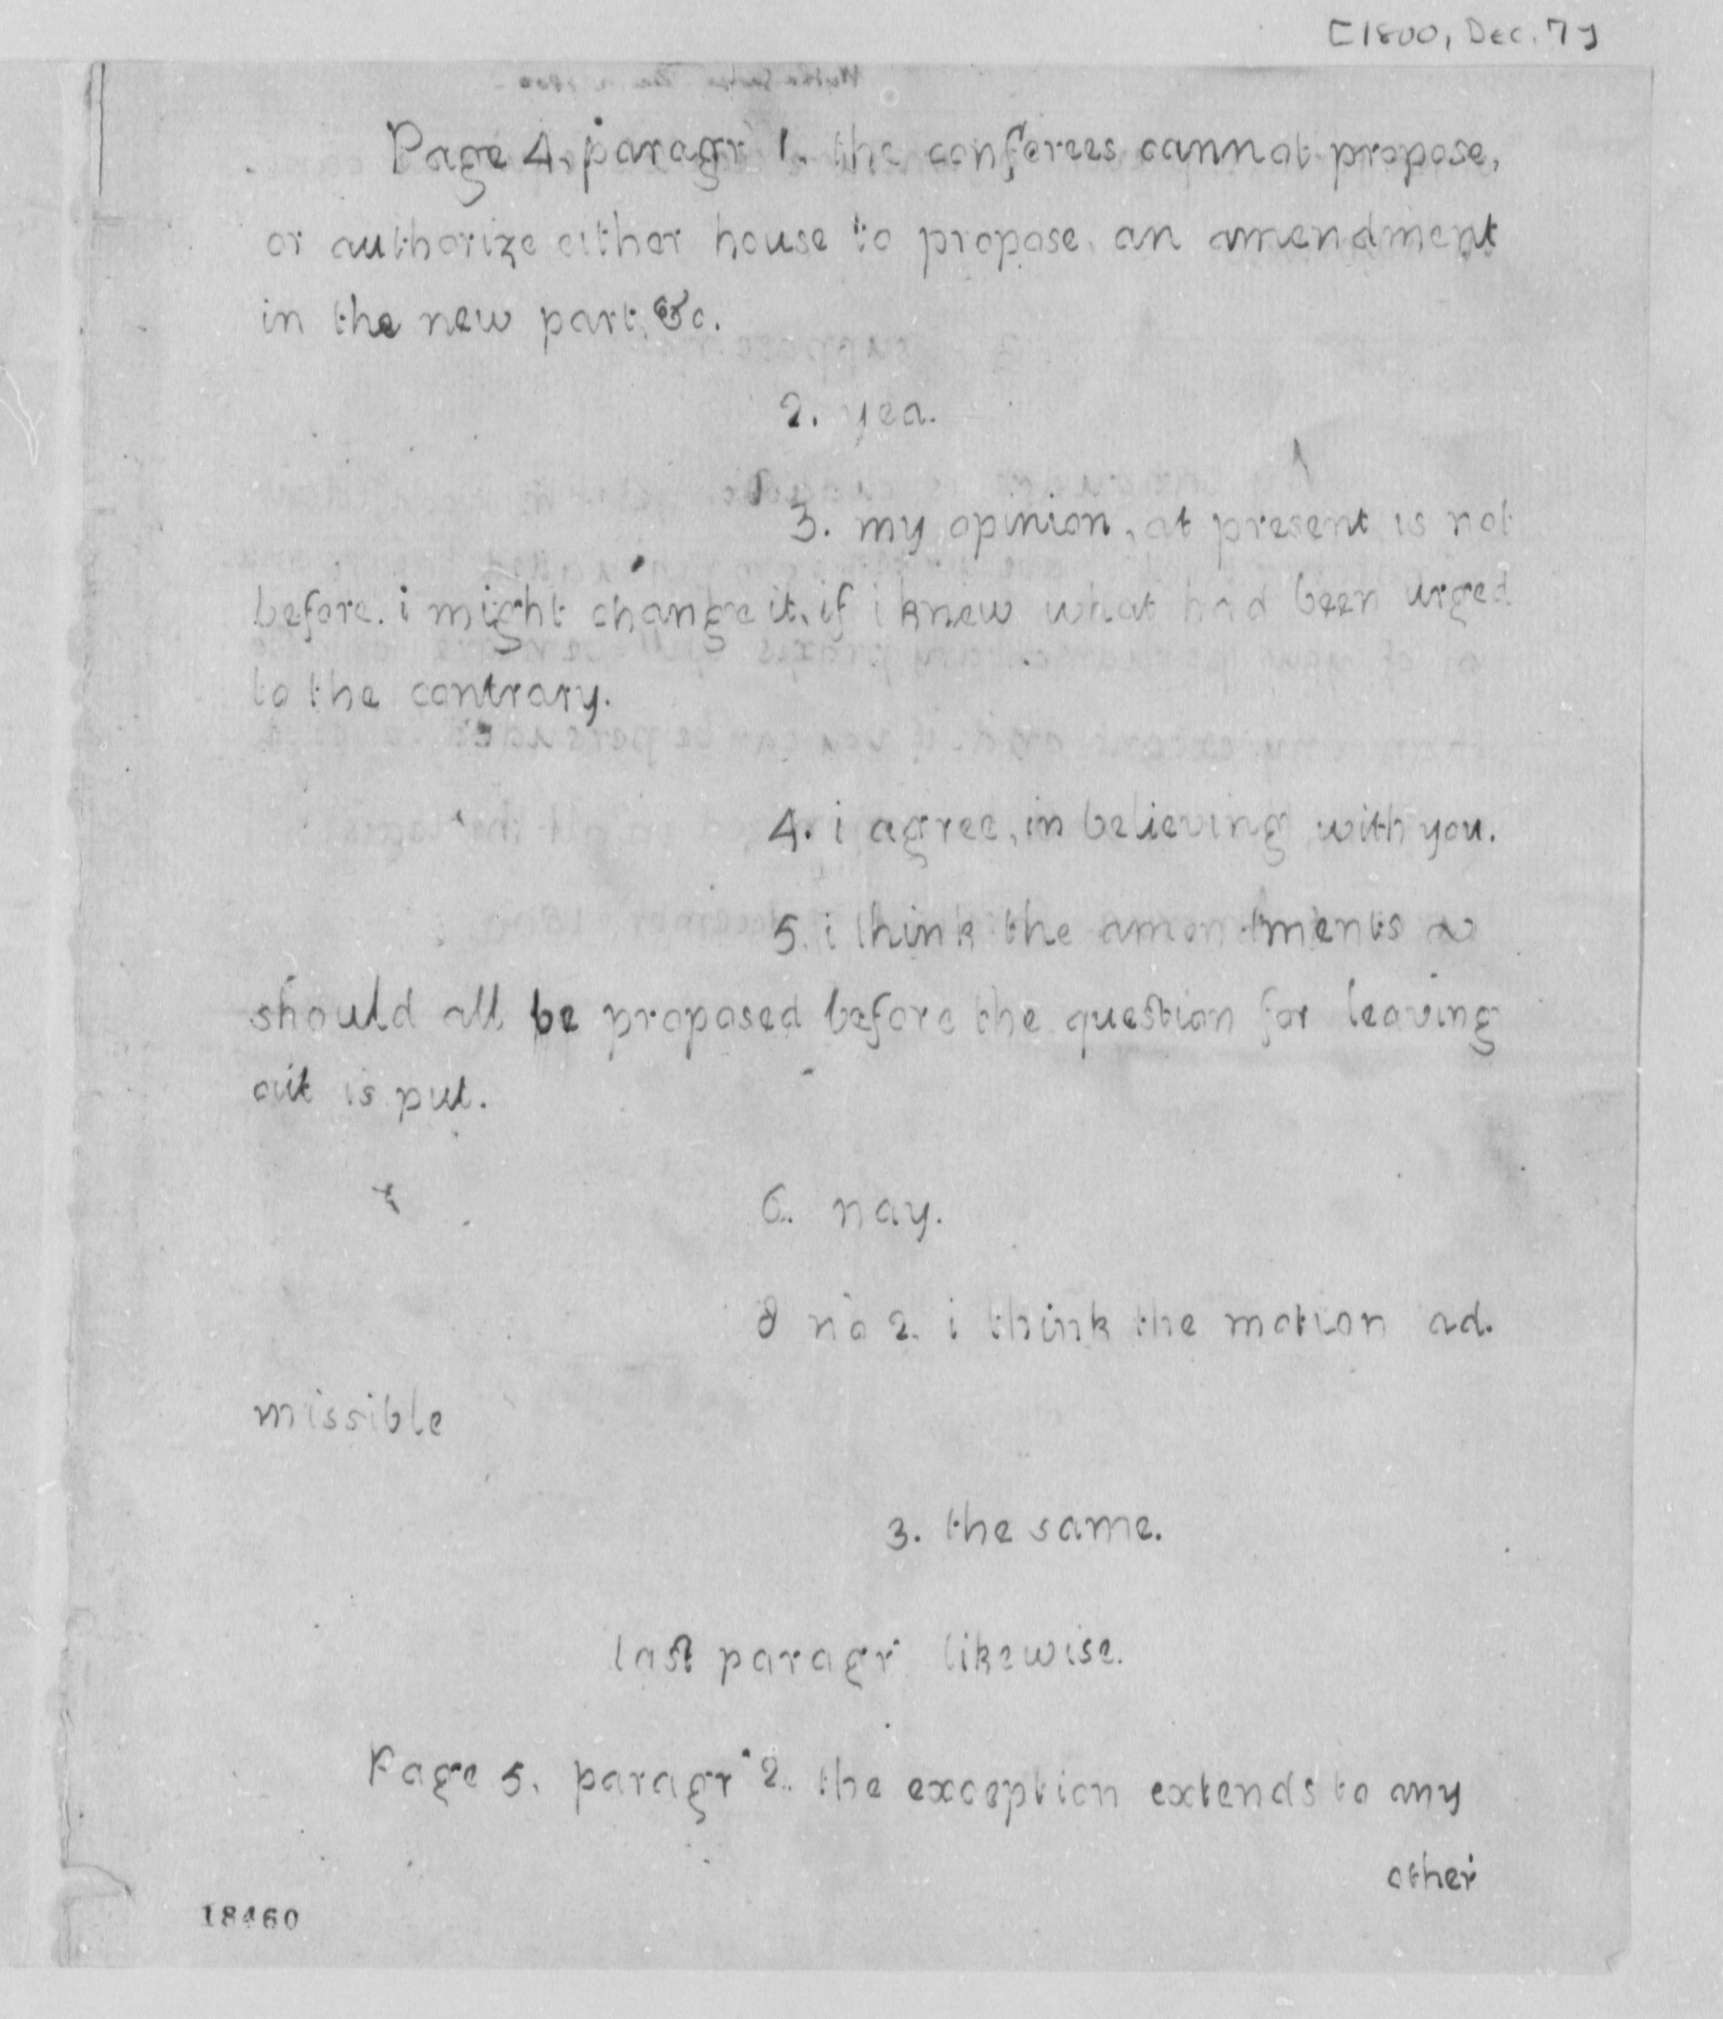 [1800, Dec. 7]
Page 4, paragr 1. the conferees cannot propose,
or authorize either house to propose, an amendment
in the new part, &c.
2. yea.
3. my opinion, at present is not
before. i might change it, if i knew what had been urged
to the contrary.
4. i agree, in believing with you.
5. i think the amendments
should all be proposed before the question for leaving
out is put.
6. nay.
8 no 2. i think the motion ad.
missible
3. the same.
last paragr likewise.
Page 5. paragr 2. the exception extends to any
other
18460